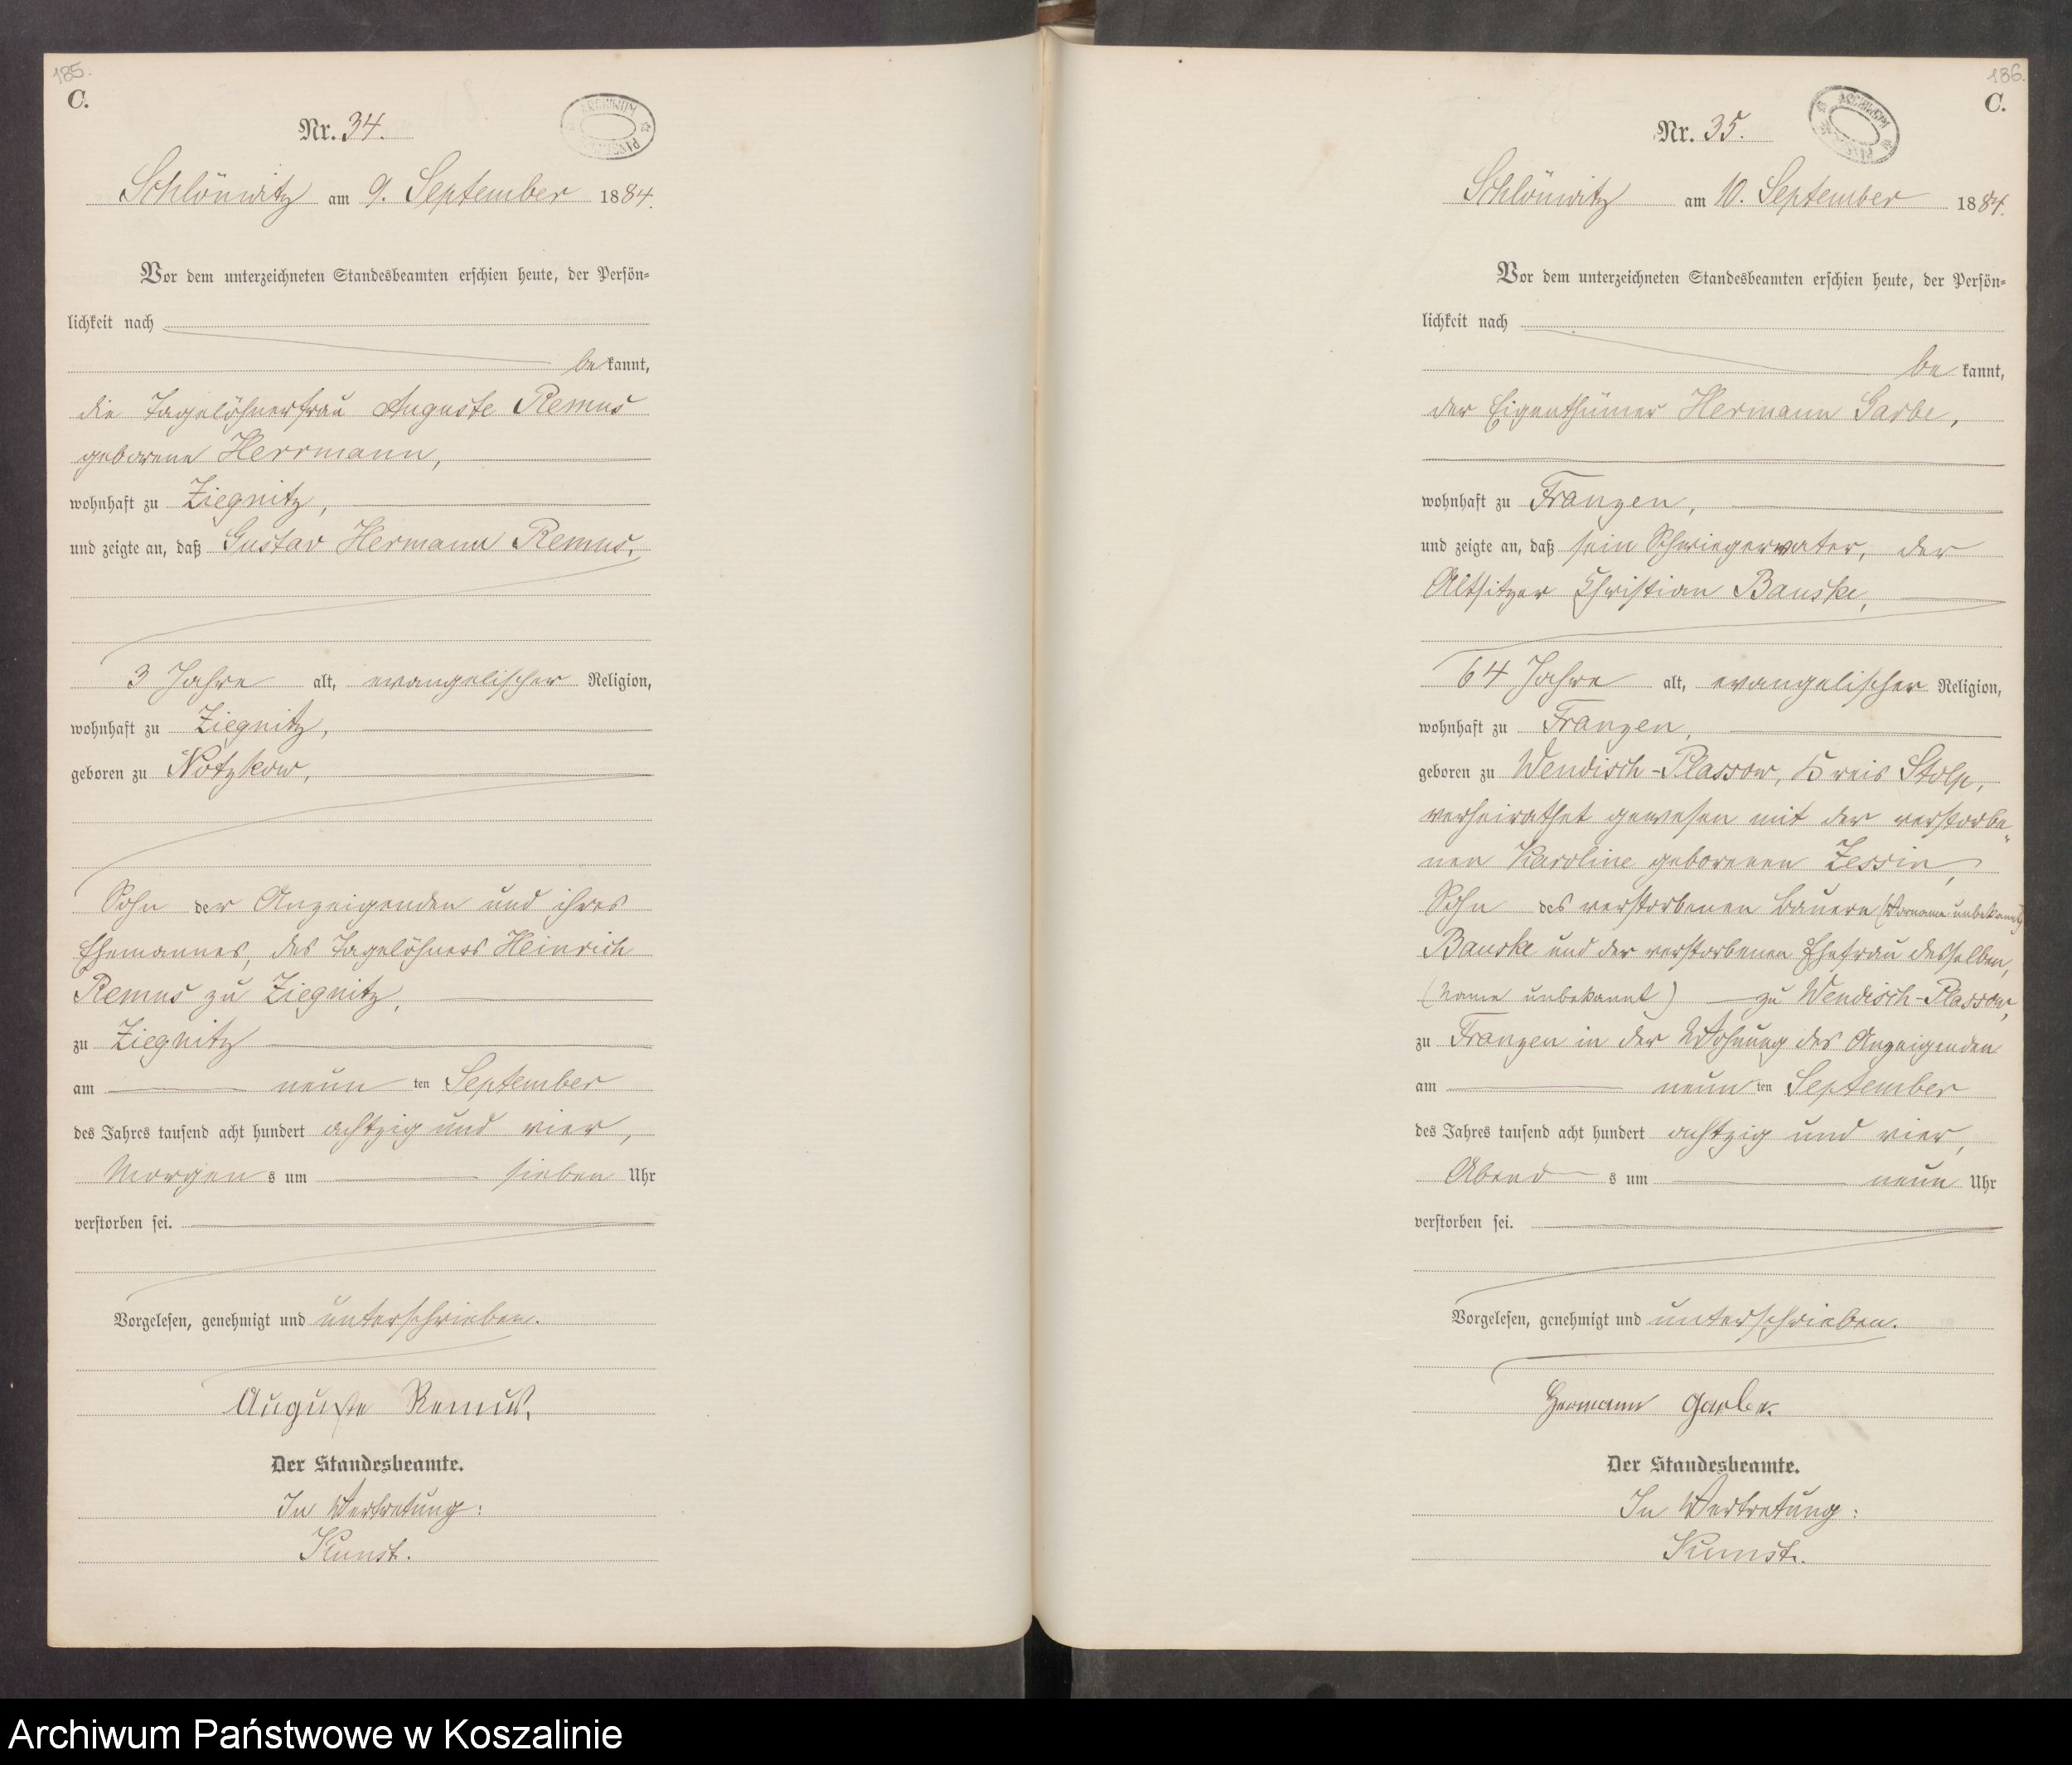 185.
C.
Nr. 34.
ARCHIWUM
Schlönwitz am 9. September 1884.
Vor dem unterzeichneten Standesbeamten erschien heute, der Persön-
lichkeit nach
be kannt,
die Tagelöhnerfrau Auguste Remus
geborene Herrmann,
wohnhaft zu Ziegnitz,
und zeigte an, daß Gustav Hermann Remus,
3 Jahre alt, evangelischer Religion,
wohnhaft zu Ziegnitz,
geboren zu Notzkow,
Sohn der Anzeigenden und ihres
Ehemannes, des Tagelöhners Heinrich
Remus zu Ziegnitz,
zu Ziegnitz
am neun ten September
des Jahres tausend acht hundert achtzig und vier,
Morgen s um sieben Uhr
verstorben sei.
Vorgelesen, genehmigt und unterschrieben.
Auguste Remus.
Der Standesbeamte.
In Vertretung:
Kunst.
186.
C.
Nr. 35.
ARCHIWUM
Schlönwitz am 10. September 1884.
Vor dem unterzeichneten Standesbeamten erschien heute, der Persön-
lichkeit nach
be kannt,
der Eigenthümer Hermann Garbe,
wohnhaft zu Franzen,
und zeigte an, daß sein Schwiegervater, der
Altsitzer Christian Bauske,
64 Jahre alt, evangelischer Religion,
wohnhaft zu Franzen,
geboren zu Wendisch-Plassow, Kreis Stolp,
verheirathet gewesen mit der verstorbe-
nen Karoline geborenen Zessin,
Sohn des verstorbenen Bauern (Vorname unbekannt)
Bauske und der verstorbenen Ehefrau desselben,
(Name unbekannt) zu Wendisch-Plassow,
zu Franzen in der Wohnung des Anzeigenden
am neun ten September
des Jahres tausend acht hundert achtzig und vier,
Abend s um neun Uhr
verstorben sei.
Vorgelesen, genehmigt und unterschrieben.
Hermann Garbe.
Der Standesbeamte.
In Vertretung:
Kunst.
Archiwum Państwowe w Koszalinie